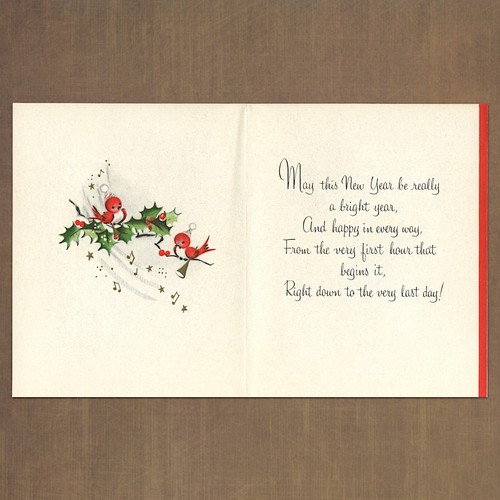 May this New Year be really
a bright year,
And happy in every way,
From the very first hour that
begins it,
Right down to the very last day!